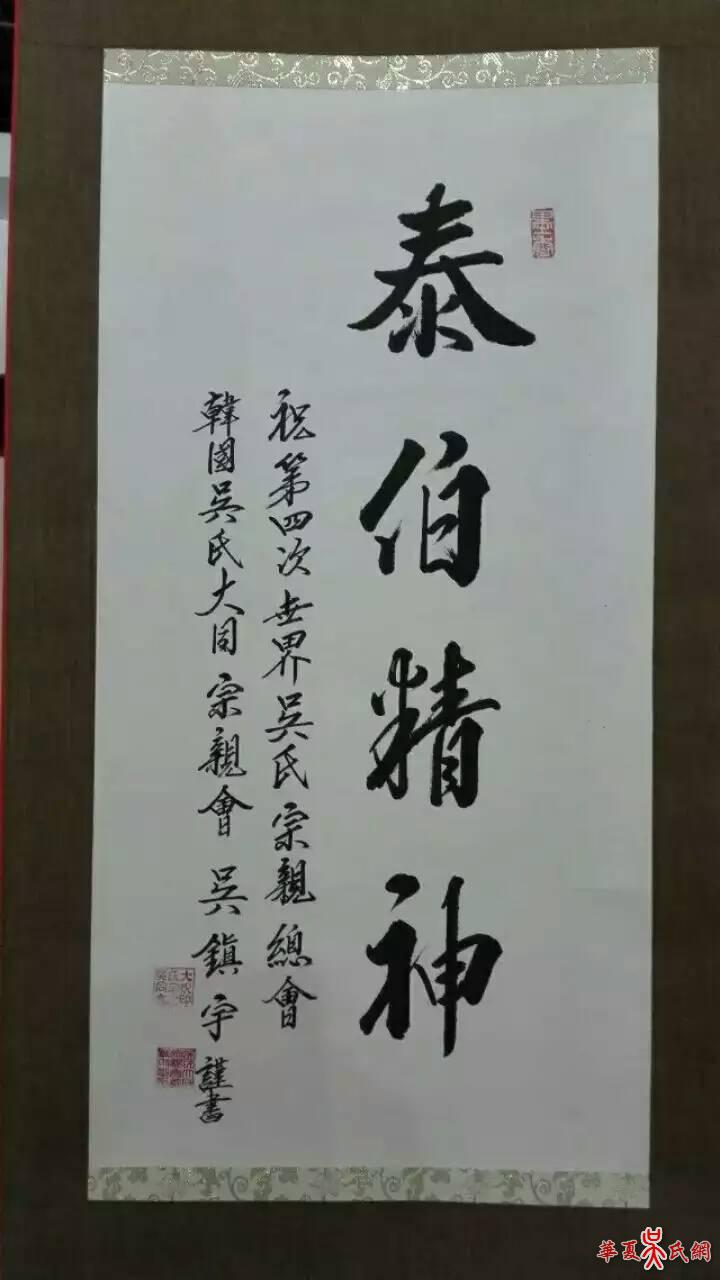 泰伯精神
祝第四次世界吳氏宗親總會
韓國吳氏大同宗親會 吳鎮宇 謹書
華夏吳氏網